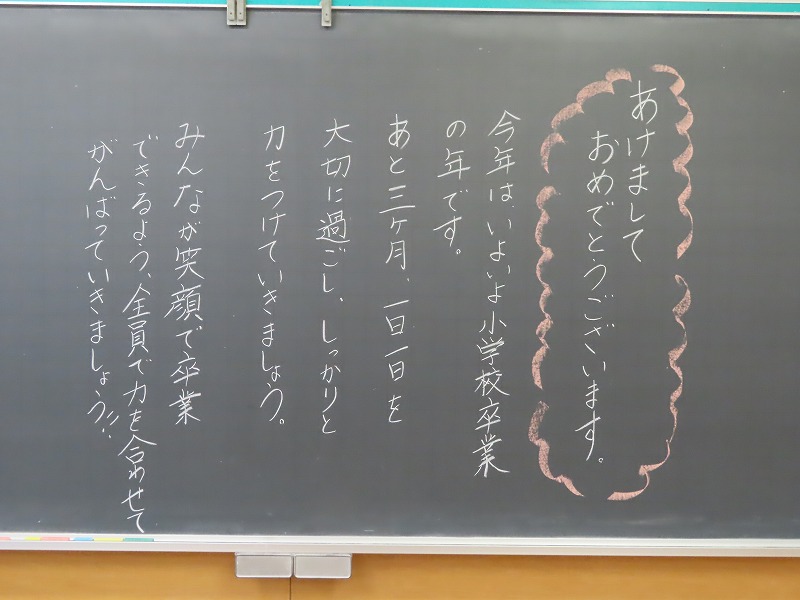 あけまして
おめでとうございます。
今年はいよいよ小学校卒業
の年です。
あと三ヶ月、一日一日を
大切に過ごし、しっかりと
力をつけていきましょう。
みんなが笑顔で卒業
できるよう、全員で力を合わせて
がんばっていきましょう!!